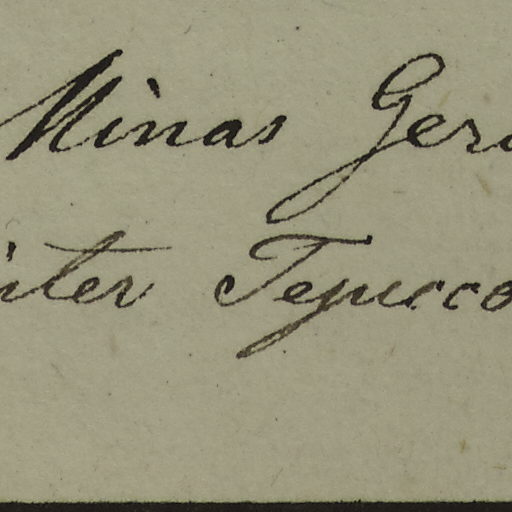 Minas Gera
inter Tejucco